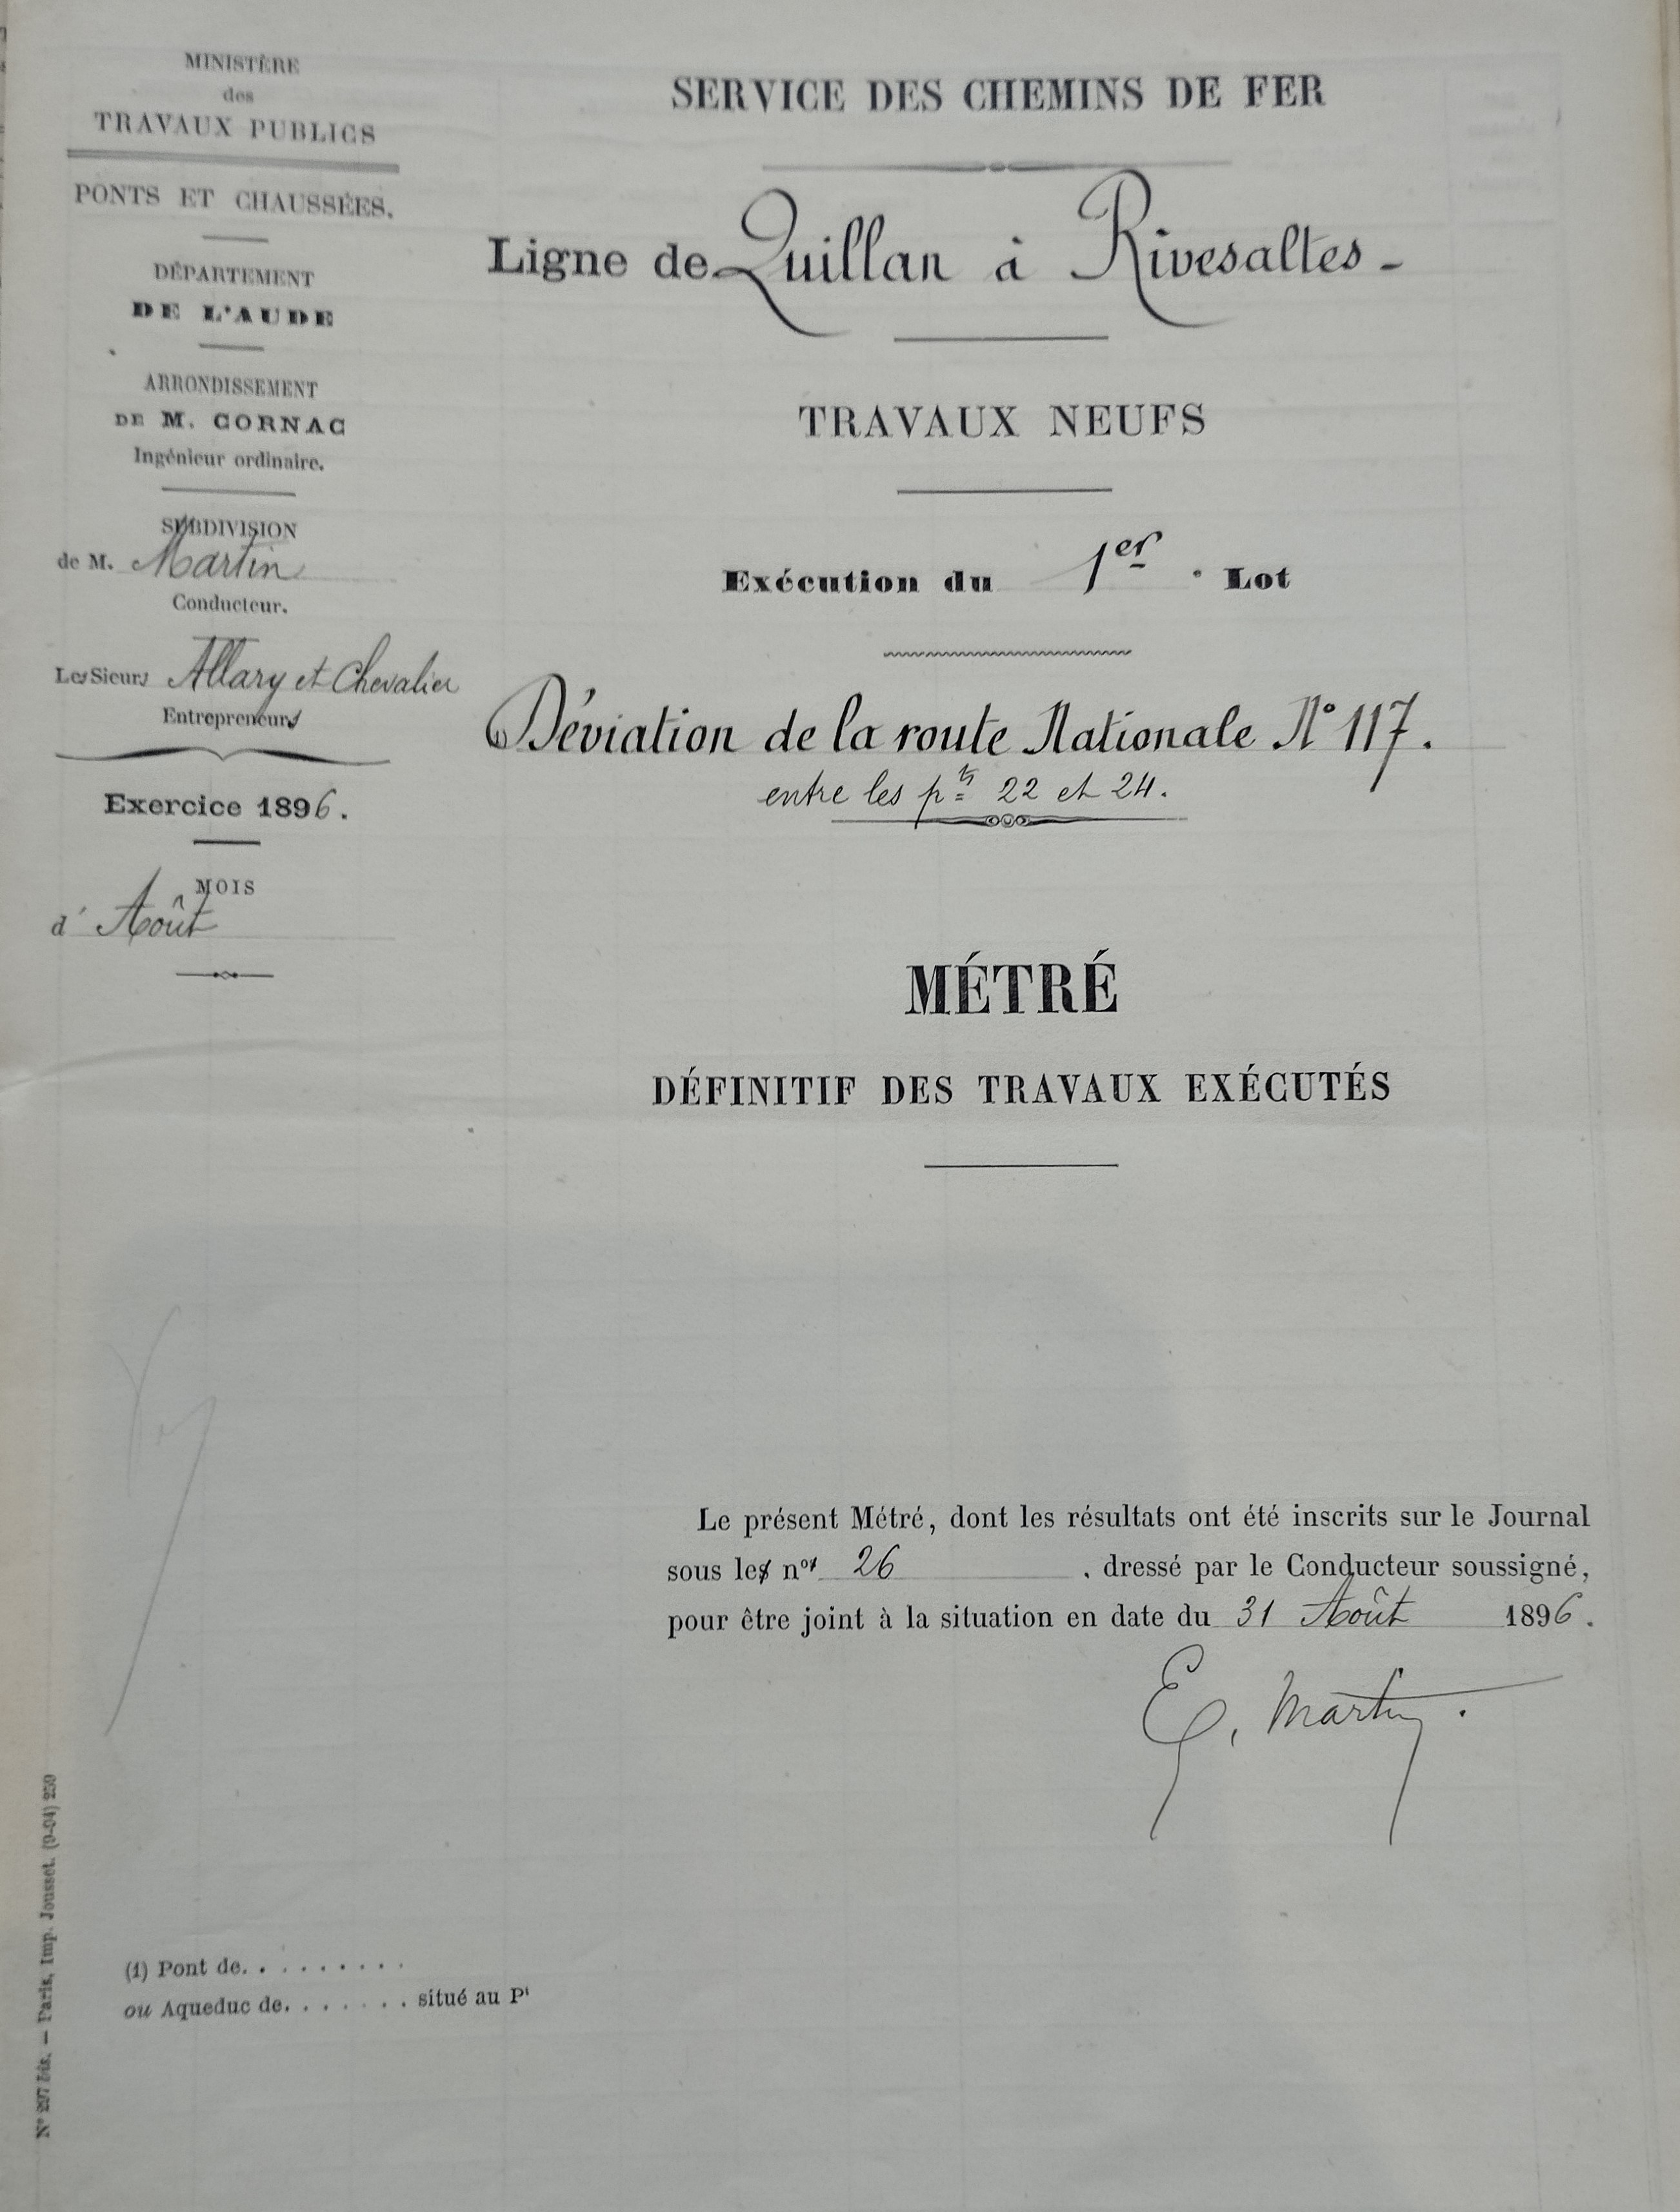 MINISTÈRE
des
TRAVAUX PUBLICS
PONTS ET CHAUSSÉES.
DÉPARTEMENT
DE L'AUDE
ARRONDISSEMENT
DE M. CORNAC
Ingénieur ordinaire.
SUBDIVISION
de M. Martin
Conducteur.
Les Sieurs Allary et Chevalier
Entrepreneurs
Exercice 1896.
MOIS
d' Août
SERVICE DES CHEMINS DE FER
Ligne de Quillan à Rivesaltes -
TRAVAUX NEUFS
Exécution du 1er Lot
Déviation de la route Nationale N° 117.
entre les pts 22 et 24.
MÉTRÉ
DÉFINITIF DES TRAVAUX EXÉCUTÉS
Le présent Métré, dont les résultats ont été inscrits sur le Journal
sous le n° 26 , dressé par le Conducteur soussigné,
pour être joint à la situation en date du 31 Août 1896.
E. Martin.
(1) Pont de. . . . . . . . . .
ou Aqueduc de. . . . . . . . situé au Pt
N° 297 bis. — Paris, Imp. Jousset. (9-04) 250